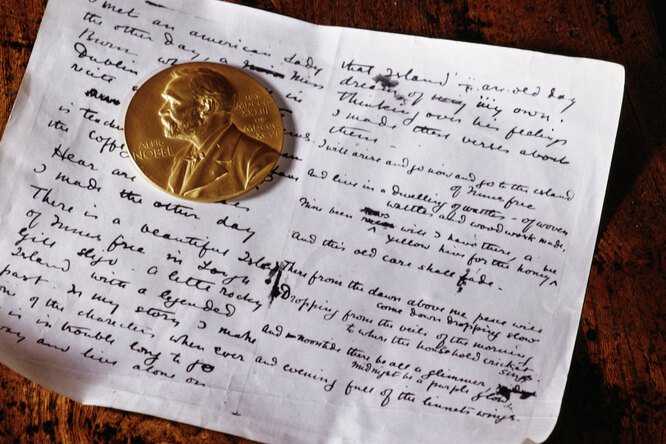 I met an american lady
the other day a Miss
Burn
Dublin in
is teaching
the
Hear are
I made the other day
There is a beautiful Island
of Innis free in Lough
Gill Sligo. A little rocky
Island with a legended
past. In my story I make
one of the characters when ever
he is in trouble long to go
away and live alone on
ALFR.
NOBEL
NAT.
MDCCC
XXXIII
OB.
MDCCC
XCVI
that Island – an old day
dream of my own.
Thinking over his feelings
I made these verses about
them –
I will arise and go now and go to the island
of Innis free
and live in a dwelling of wattles – of woven
wattles and wood work made,
Nine bean rows will I have there, a
yellow hive for the honey
And this old care shall fade.
There from the dawn above me peace will
come down dropping slow
Dropping from the veils of the morning
to where the household cricket
sings.
and noontide there be all a glimmer,
midnight be a purple glow
and evening full of the linnets wings.